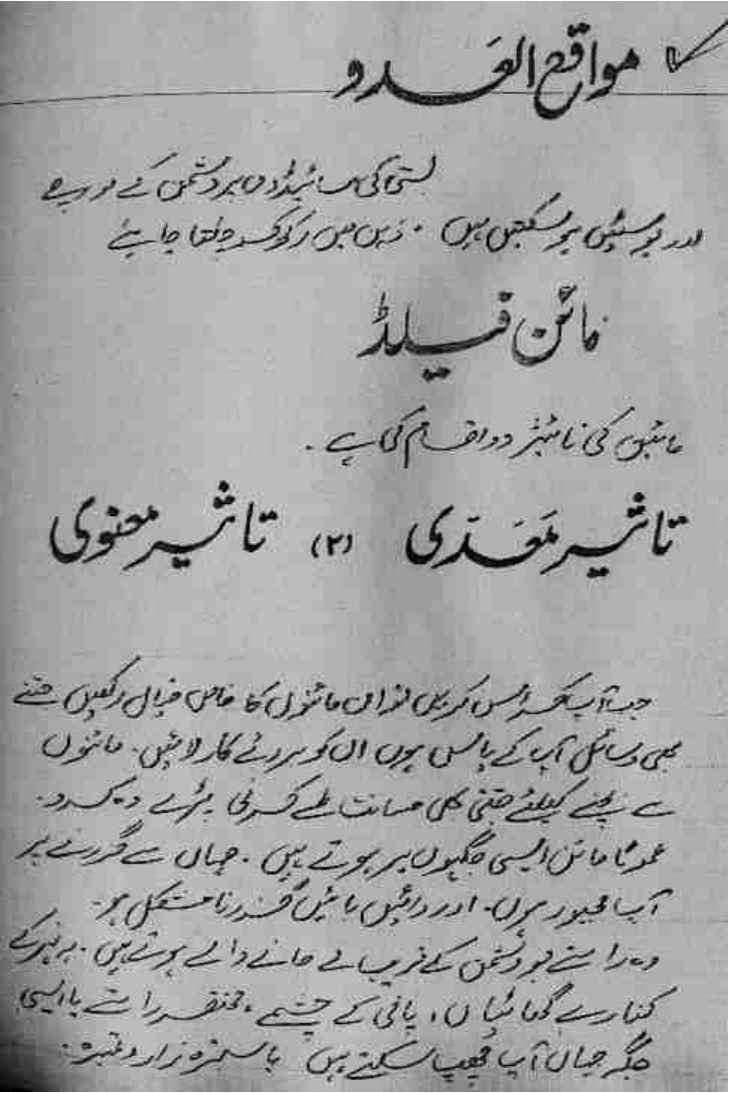 مواقع العَدو
بستی کی سائیڈوں پر دشمن کے مورچے
اور پوسٹیں ہو سکتیں ہیں ۔ ذہن میں رکھ کر چلنا چاہیئے
مائن فیلڈ
مائنوں کی تاثیر دو اقسام کی ہے ۔
تاثیر مَعَدّی (۲) تاثیر معنوی
جب آپ کراس کریں تو ان مائنوں کا خاص خیال رکھیں جتنے
بھی وسائل آپ کے پاس ہوں ان کو بروئے کار لائیں ۔ مائنوں
سے بچنے کیلئے جتنی بھی مسافت طے کرنی پڑے وہ کرو ۔
عموماً مائن ایسی جگہوں پر ہوتے ہیں ۔ جہاں سے گزرنے پر
آپ مجبور ہوں ۔ اور دائیں بائیں گزرنا مشکل ہو ۔
وہ راستے جو دشمن کے قریب لے جانے والے ہوتے ہیں ۔ نہر کے
کنارے گھاٹیاں ، پانی کے چشمے ، مختصر راستے یا ایسی
جگہ جہاں آپ چھپ سکتے ہیں یا سبزہ زار وغیرہ ۔